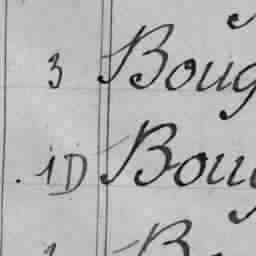 3 Boug
. 1D Boug